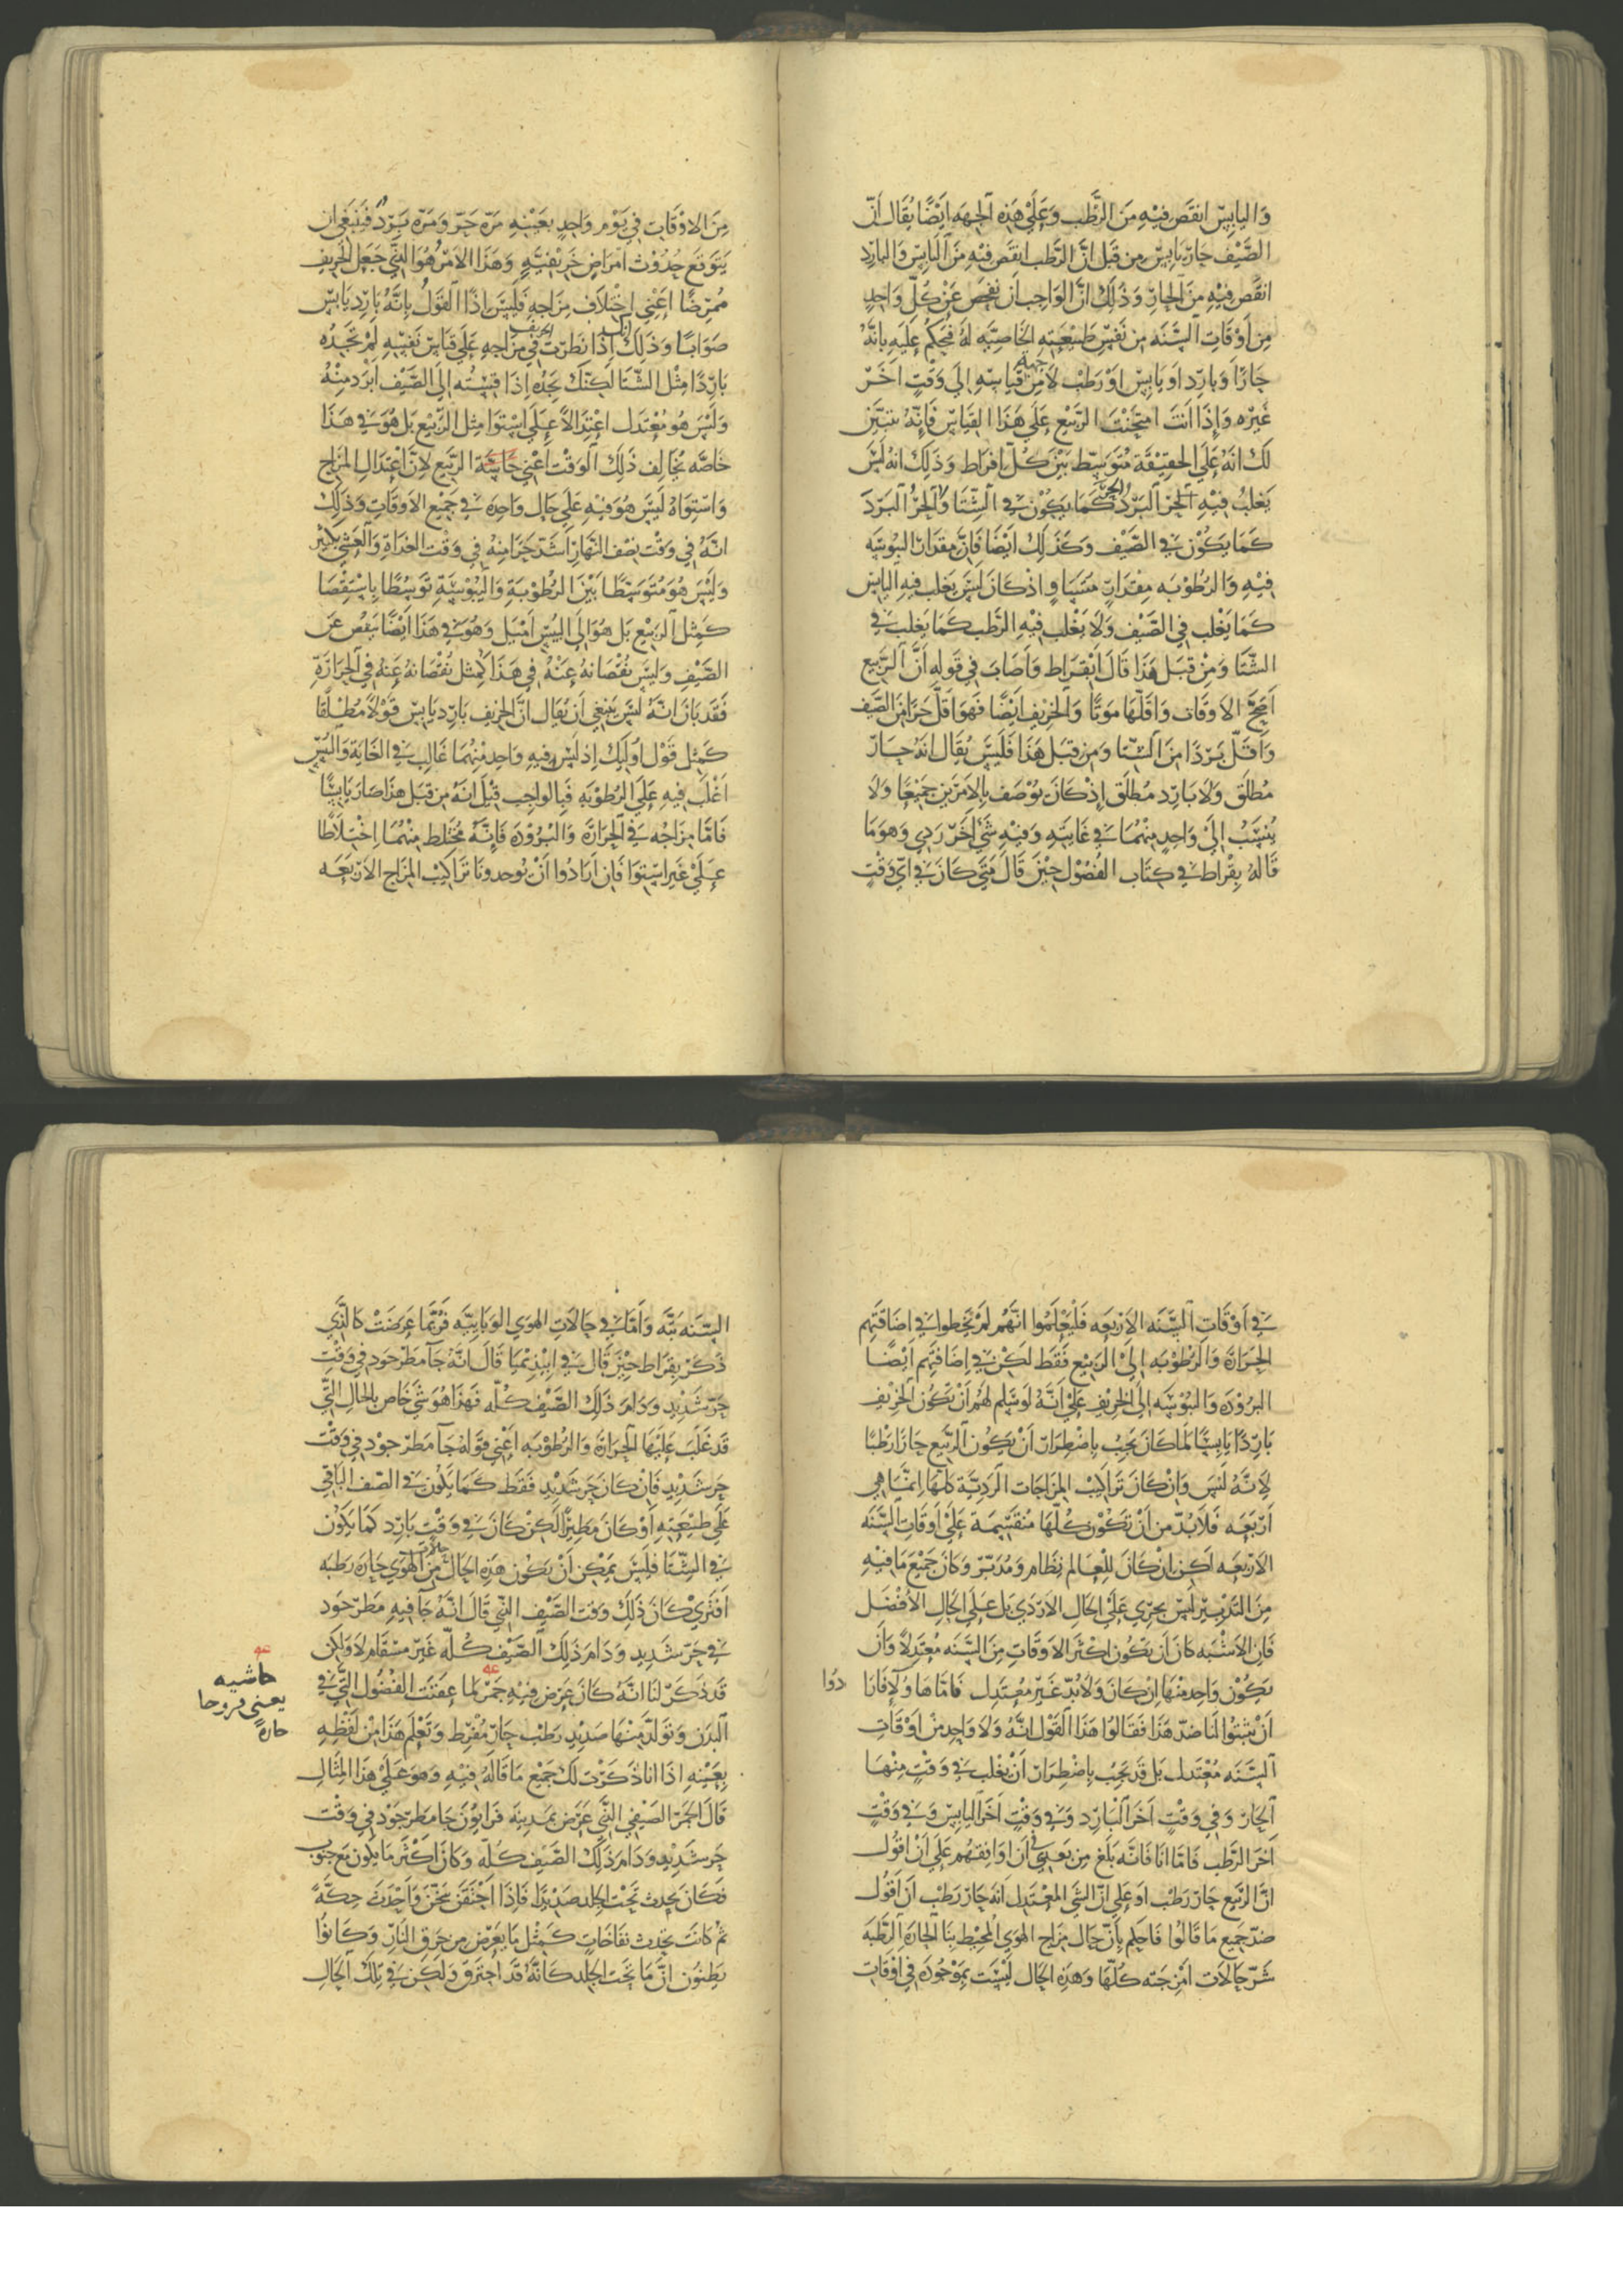 واليابس انقص فيه من الرطب وعلي هذه الجهه ايضًا يقال ان
الصيف حار يابس من قبل ان الرطب انقص فيه من اليابس والبارد
انقص فيه من الحار وذلك ان الواجب ان نفحص عن كل واحد
من اوقات السنه من نفس طبيعته الخاصيه له فنحكم عليه بانه
حارًا وبارد او يابس او رطب لا من جهة قياسه الي وقت اخر
غيره واذا انت امتحنت الربيع علي هذا القياس فانه يتبين
لك انه علي الحقيقة متوسط بين كل افراط وذلك انه ليس
يغلب فيه الحر البرد كما يكون في الشتا والحر البرد
كما يكون في الصيف وكذلك ايضًا فان مقدار اليبوسه
فيه والرطوبه مقدار متساو اذ كان ليس يغلب فيه اليابس
كما يغلب في الصيف ولا يغلب فيه الرطب كما يغلب في
الشتا ومن قبل هذا قال ابقراط واصاب في قوله ان الربيع
اصح الاوقات واقلها موتًا والخريف ايضًا فهو اقل حرا من الصيف
واقل بردًا من الشتا ومن قبل هذا فليس يقال انه حار
مطلق ولا بارد مطلق اذ كان يوصف بالامرين جميعا ولا
ينسب الي واحد منهما في غايته وفيه شي اخر ردي وهو ما
قاله بقراط في كتاب الفصول حين قال متي كان في اي وقت
من الاوقات في يوم واحد بعينه مرة حر ومره برد فينبغي ان
يتوقع حدوث امراض خريفية وهذا الامر هو الذي جعل الخريف
ممرضًا اعني اختلاف مزاجه فليس اذًا القول بانه بارد يابس
صوابًا وذلك انك اذا نظرت في مزاج الخريف علي قياس نفسه لم تجده
باردًا مثل الشتا لكنك تجده اذا قيسته الي الصيف ابرد منه
وليس هو معتدل اعتدالاً علي استوا مثل الربيع بل هو في هذا
خاصه يخالف ذلك الوقت اعني الربيع لان اعتدال المزاج
واستواه ليس هو فيه علي حال واحده في جميع الاوقات وذلك
انه في وقت نصف النهار اشد حرا منه في وقت الغداة والعشي بكثير
وليس هو متوسطًا بين الرطوبة واليبوسة توسطًا باستقصا
كمثل الربيع بل هو الي اليبس اميل وهو في هذا ايضًا ينقص عن
الصيف وليس نقصانه عنه في هذا كمثل نقصانه عنه في الحرارة
فقد بان انه ليس ينبغي ان يقال ان الخريف بارد يابس قولاً مطلقا
كمثل قول اوليك اذ ليس فيه واحد منهما غالب في الغاية واليبس
اغلب فيه علي الرطوبه فبالواجب قيل انه من قبل هذا صار يابسًا
فاما مزاجه في الحرارة والبرودة فانه مختلط منهما اختلاطا
علي غير استوا فان ارادوا ان يوجدونا تراكيب المزاج الاربعه
في اوقات السنه الاربعه فليعلموا انهم لم يخطوا في اضافتهم
الحرارة والرطوبه الي الربيع فقط لكن في اضافتهم ايضًا
البرودة واليبوسه الي الخريف علي انه لو سلم لهم ان يكون الخريف
باردًا يابسًا لما كان يجب باضطرار ان يكون الربيع حارا رطبا
لانه ليس وان كان تراكيب المزاجات الردية كلها انما هي
اربعه فلا بد من ان تكون كلها منقسمة علي اوقات السنه
الاربعه لكن ان كان للعالم نظام ومدبر وكان جميع ما فيه
من التدبير ليس يجري علي الحال الاردي بل علي الحال الافضل
فان الاشبه كان ان يكون اكثر الاوقات من السنه معتدلاً وان
يكون واحد منها ان كان ولا بد غير معتدل فاما هاولا فانا
دوا
ان يثبتوا لنا ضد هذا فقالوا هذا القول انه ولا واحد من اوقات
السنه معتدل بل قد يجب باضطرار ان يغلب في وقت منها
الحار وفي وقت اخر البارد وفي وقت اخر اليابس وفي وقت
اخر الرطب فاما انا فانه بلغ من بعدي في ان اوافقهم علي ان اقول
ان الربيع حار رطب او علي ان الشي المعتدل انه حار رطب ان اقول
ضد جميع ما قالوا فاحكم بان حال مزاج الهوي المحيط بنا الحارة الرطبه
شر حالات امزجته كلها وهذه الحال ليست بموجوده في اوقات
السنه بته واما في حالات الهوي الوبايية فربما عرضت كالتي
ذكر بقراط حين قال في ابيذيميا قال انه جا مطر جود في وقت
حر شديد ودام ذلك الصيف كله فهذا هو شي خاص بالحال التي
قد غلب عليها الحرارة والرطوبه اعني قوله جا مطر جود في وقت
حر شديد فان كان حر شديد فقط كما يكون في الصيف الباقي
علي طبيعته او كان مطيرًا لكن كان في وقت بارد كما يكون
في الشتا فليس يمكن ان يكون هذه الحال من الهوي حارة رطبه
افتري كان ذلك وقت الصيف الذي قال انه جا فيه مطر جود
في حر شديد ودام ذلك الصيف كله غير مسقام لا ولكن
قد ذكر لنا انه كان عرض فيه جمر لما عفنت الفضول التي في
البدن وتولد منها صديد رطب حار مفرط وتعلم هذا من لفظه
بعينه اذا انا ذكرت لك جميع ما قاله فيه وهو علي هذا المثال
قال الجمر الصيفي الذي عرض بمدينه قرانون جا مطر جود في وقت
حر شديد ودام ذلك الصيف كله وكان اكثر ما يكون مع جنوب
فكان يحدث تحت الجلد صديدًا فاذا احتقن سخن واحدث حكة
ثم كانت تحدث نفاخات كمثل ما يعرض من حرق النار وكانوا
يظنون ان ما تحت الجلد كانه قد احترق ولكن في تلك الحال
حاشيه
يعني قروحا
حارة